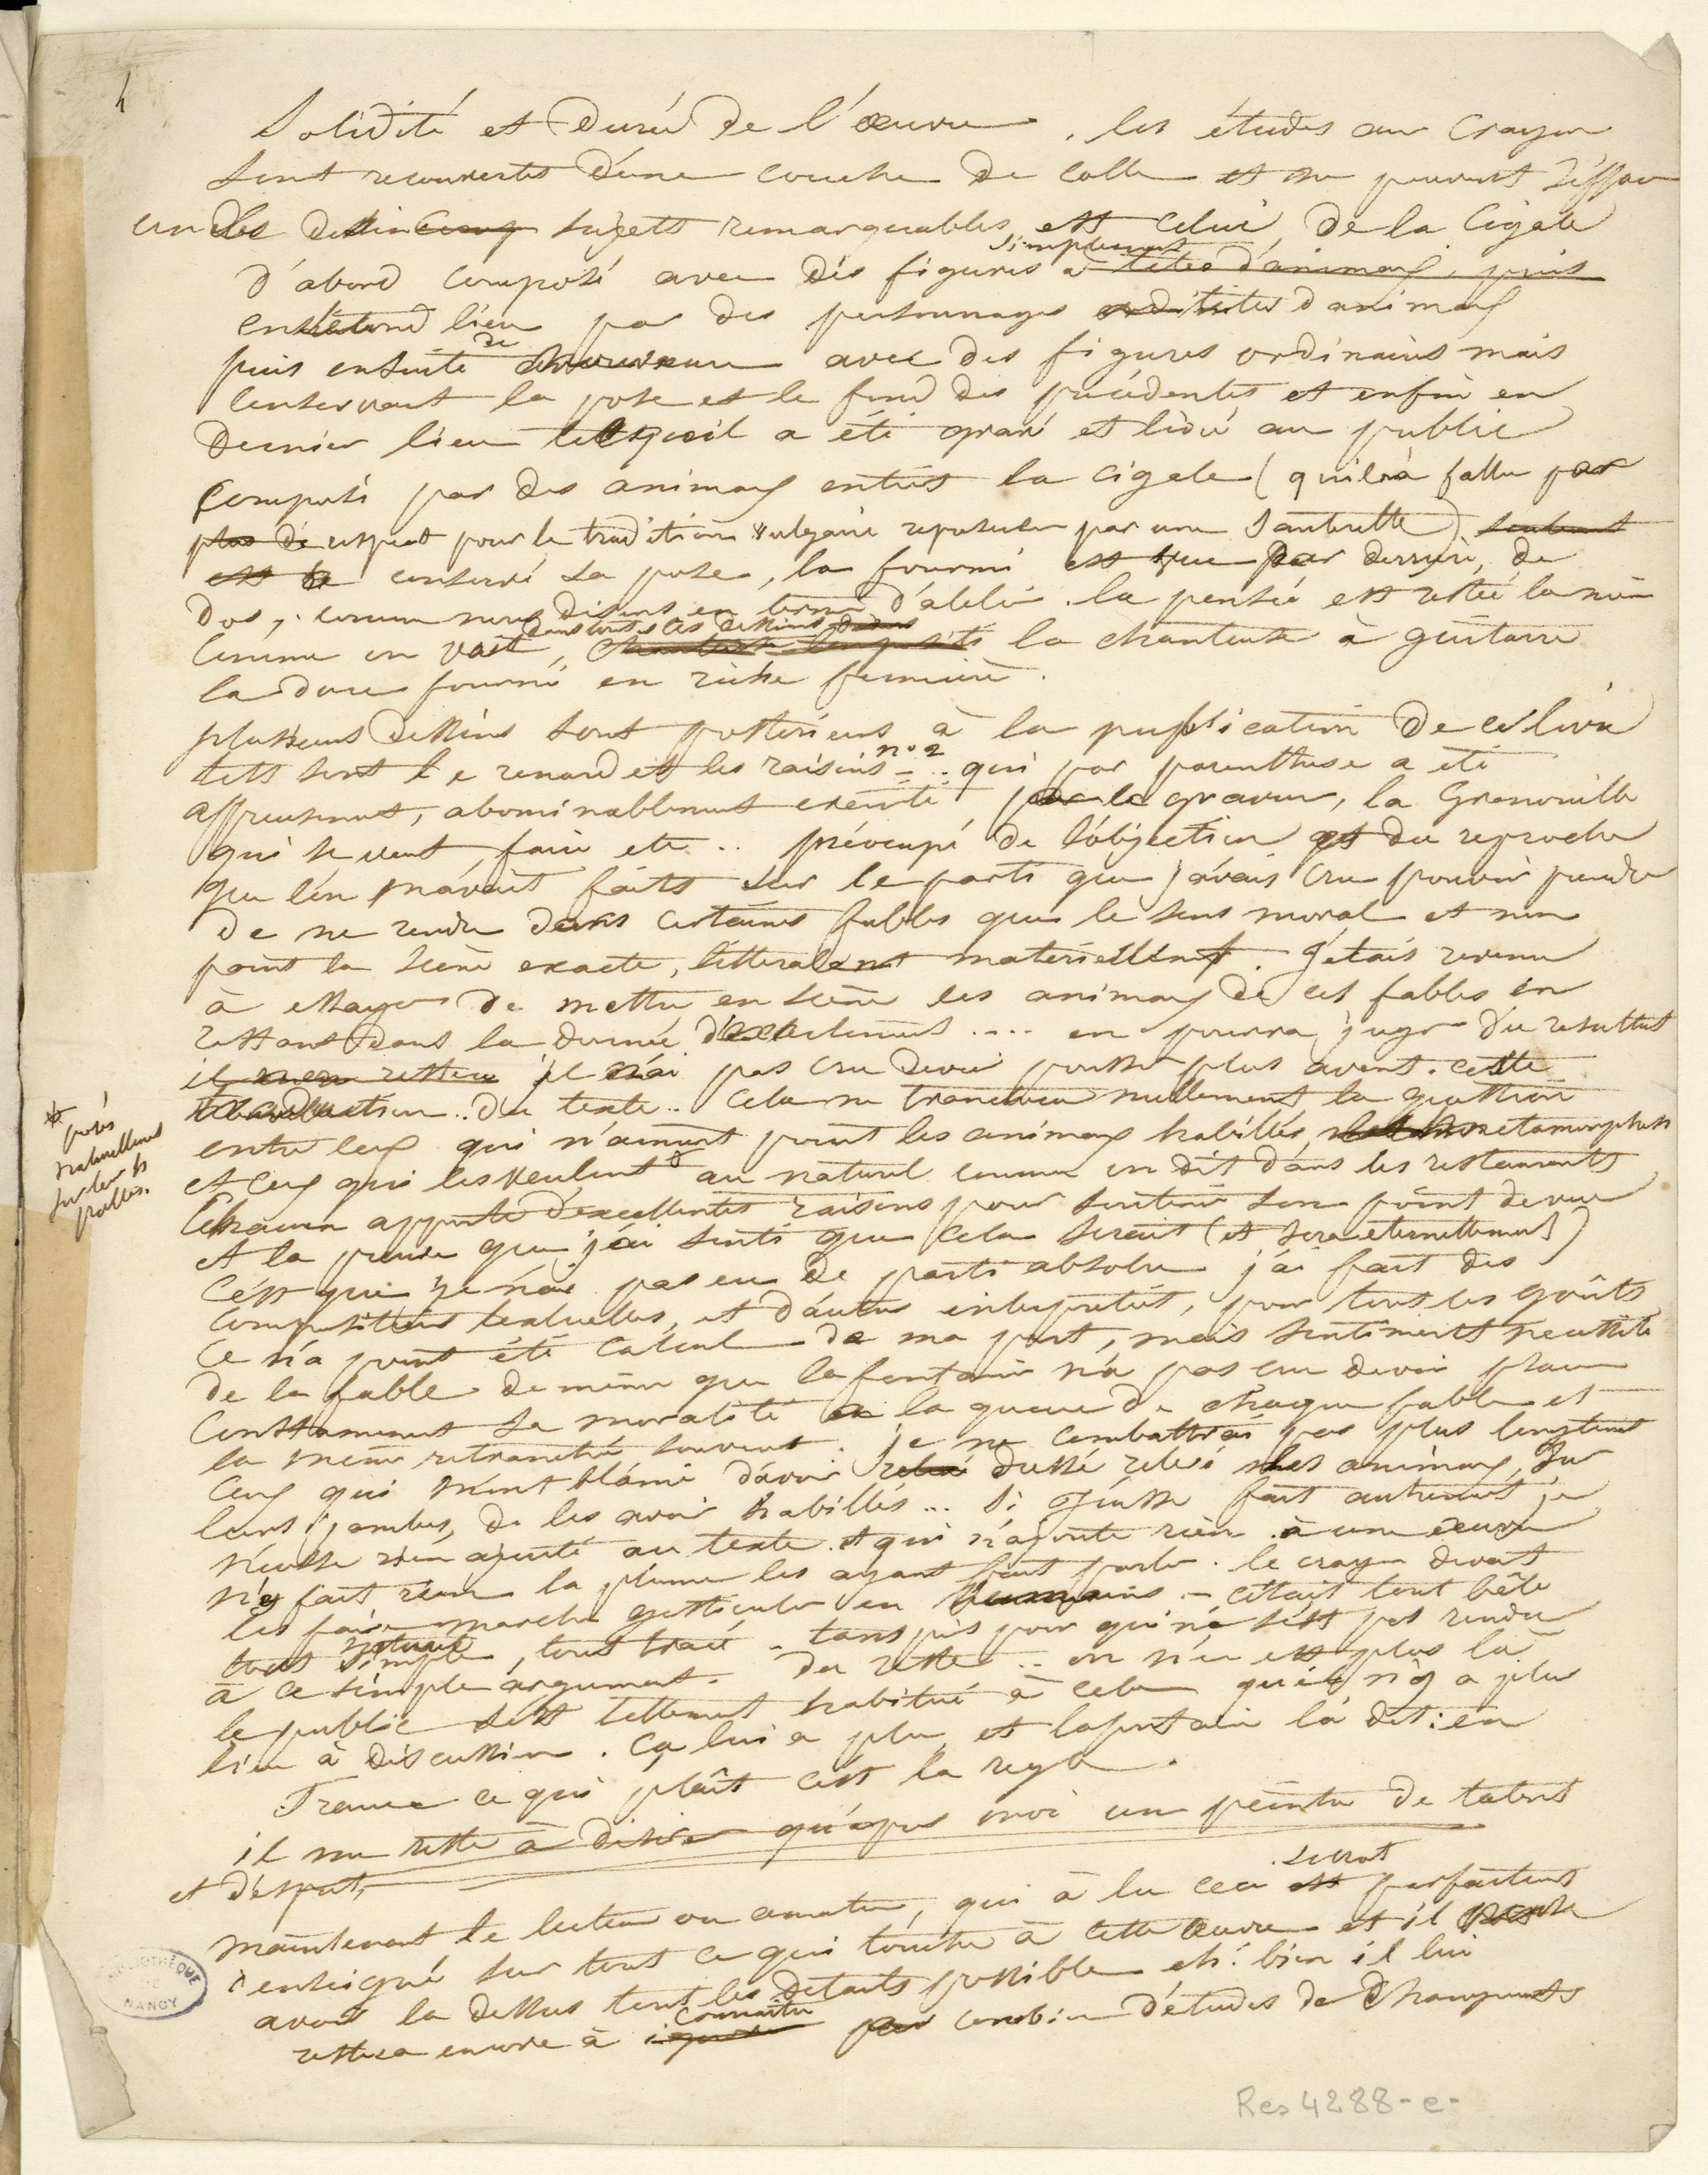 4
Solidité et Durée de l'œuvre. les études au Crayon
sont recouvertes d'une couche de colle et ne peuvent s'effacer
un des dessin sujets remarquables est celui, de la Cigale
simplement
d'abord composé avec des figures à têtes d'animaux, puis
en second lieu par des personnages têtes d'animaux
puis ensuite de nouveau avec des figures ordinaires mais
conservant la pose et le fond des précédentes et enfin en
dernier lieu tel qu'il a été gravé et livré au public
Composé par des animaux entiers la cigale (qu'il a fallu par
plus de respect pour la tradition vulgaire représenter par une sauterelle) seulement
est de conservé sa pose, la fourmi est vue par derrière, de
dos, comme nous disons en terme d'atelier. la pensée est restée la même
dans tous ces dessins
Comme on voit, la chanteuse à guitare
la dure fourmi en riche fermière.
plusieurs dessins sont postérieurs à la publication de ce livre
n° 2
tels sont le renard et les raisins = .. qui par parenthèse a été
affreusement, abominablement exécuté par le graveur, la Grenouille
qui se veut faire etc .. préocupé de l'objection et du reproche
que l'on m'avait faits sur le parti que j'avais cru pouvoir prendre
de ne rendre dans certaines fables que le sens moral et non
point la scène exacte, littéralement matériellement. J'étais revenu
à essayer de mettre en scène les animaux de ces fables en
restant dans la donnée exactement .... on pourra juger du resultat
il reste je n'ai pas cru devoir pousser plus avant. cette
traduction .. du texte .. Cela ne tranchera nullement la question
entre ceux qui n'aiment point les animaux habillés, métamorphosés
et ceux qui les veulent au naturel comme on dit dans les restaurants
* posés
naturellement
sur leurs
pattes.
Chacun apporte d'excellentes raisons pour soutenir son point de vue
et la preuve que j'ai senti que cela serait (et sera éternellement)
C'est que je n'ai pas eu de parti absolu j'ai fait des
Compositions textuelles, et d'autres interprétées, pour tous les goûts
Ce n'a point été calcul de ma part, mais sentiment nécessité
de la fable de même que lafontaine n'a pas cru devoir placer
Constamment sa moralité à la queue de chaque fable et
la même retranchée souvent. je ne combattrai pas plus longtems
Ceux qui m'ont blâmé d'avoir dressé relevé les animaux sur
leurs jambes, de les avoir habillés ... Si j'eusse fait autrement je
n'eusse rien ajouté au texte. et qui n'ajoute rien à une œuvre
n'a fait rien la plume les ayant fait parler. le crayon devait
les faire marcher gesticuler en humains - c'était tout bête
naturel
tout simple, tout tracé - tans pis pour qui ne s'est pas rendu
à ce simple argument. Du reste .. on n'en est plus là
le public s'est tellement habitué à cela qu'il n'y a plus
lieu à discussion. Ça lui a plu, et lafontaine l'a dit: en
France ce qui plaît c'est la regle.
il me reste à désirer qu'après moi un peintre de talent
et d'esprit,
serait
maintenant le lecteur ou amateur, qui à lu ceci est parfaitement
renseigné sur tout ce qui touche à cette œuvre et il
avoir la dessus tout les détails possible eh! bien il lui
connaitre
restera encore à combien d'études de changements
BIBLIOTHÈQUE
DE
NANCY
Res 4288-e-